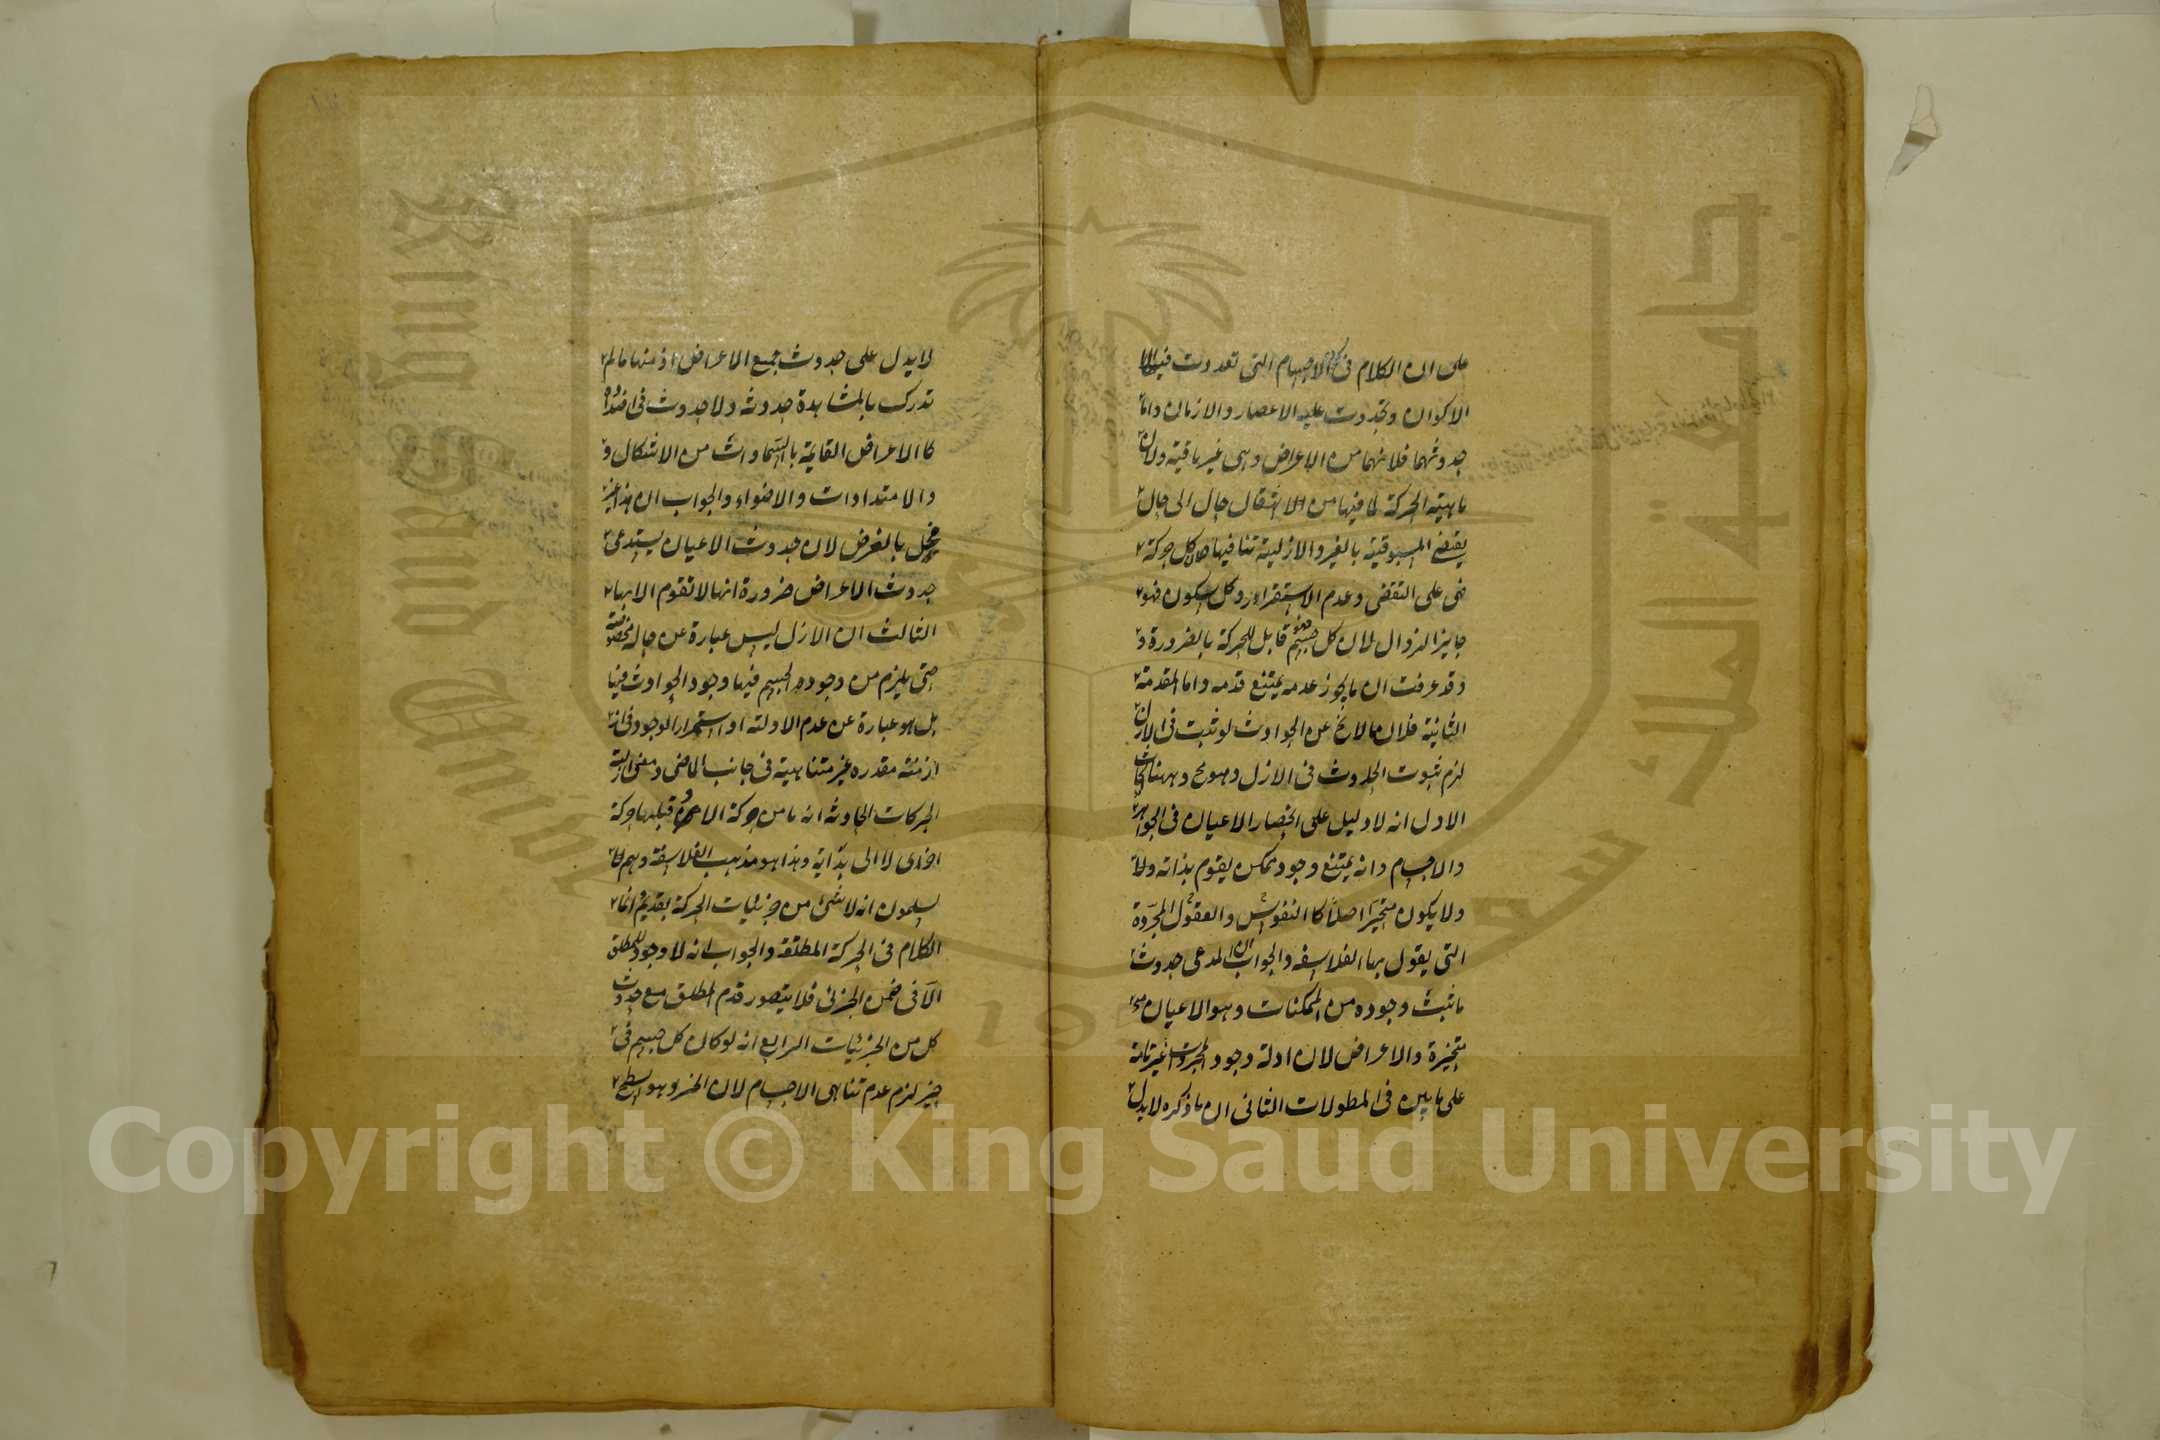 على ان الكلام فى الاجسام التى تعددت فيها
الاكوان وتجددت عليه الاعصار والازمان واما
حدوثهما فلانهما من الاعراض وهى غير باقية ولان
ماهية الحركة لما فيها من الانتقال حال الى حال
يقتضى المسبوقية بالغير والازلية تنافيها ولان كل حركة
فهى على التقضى وعدم الاستقرار وكل سكون فهو
جايز الزوال لان كل جسم فهو قابل للحركة بالضرورة و
وقد عرفت ان ما يجوز عدمه يمتنع قدمه واما المقدمة
الثانية فلان مالا يخ عن الحوادث لو ثبت فى الازل
لزم ثبوت الحادث فى الازل وهو مح وههنا ابحاث
الاول انه لا دليل على انحصار الاعيان فى الجواهر
والاجسام وانه يمتنع وجود ممكن يقوم بذاته ولا
ولا يكون متحيزا اصلا كالنفوس والعقول المجردة
التى يقول بها الفلاسفه والجواب ان المدعى حدوث
ما ثبت وجوده من الممكنات وهو الاعيان
متحيزة والاعراض لان ادلة وجود المجردات غير تامة
على ما بين فى المطولات الثانى ان ما ذكره لا يدل
لا يدل على حدوث جميع الاعراض اذ منها ما لم
تدرك بالمشاهدة حدوثه ولا حدوث فى اضداده
كالاعراض القايمة بالسماوات من الاشكال و
والامتدادات والاضواء والجواب ان هذا غير
مخل بالغرض لان حدوث الاعيان يستدعى
حدوث الاعراض ضرورة انها لا تقوم الا بها
الثالث ان الازل ليس عبارة عن حاله مخصوصة
حتى يلزم من وجود الجسم فيها وجود الحوادث فيها
بل هو عبارة عن عدم الاولته او استمرار الوجود فى
ازمنة مقدره غير متناهية فى جانب الماضى ومعنى ازلية
الحركات الحادثه انه ما من حركة الا و قبلها حركة
اخرى لا الى بداية وهذا هو مذهب الفلاسفة وهم
يسلمون انه لا شئ من جزئيات الحركة بقديم وانما
الكلام فى الحركة المطلقة والجواب انه لا وجود للمطلق
الا فى ضمن الجزئى فلا يتصور قدم المطلق مع حدوث
كل من الجزئيات الرابع انه لو كان كل جسم فى
حيز لزم عدم تناهى الاجسام لان الحيز وهو السطح
Copyright © King Saud University
جامعة الملك سعود
King Saud University